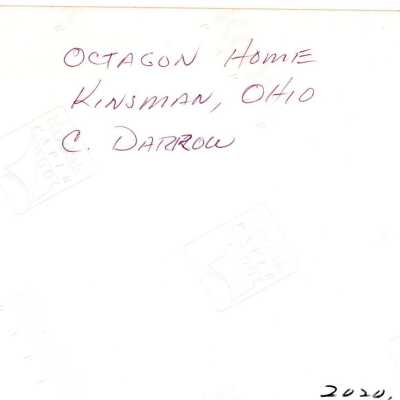 OCTAGON HOME
KINSMAN, OHIO
C. DARROW
2020.